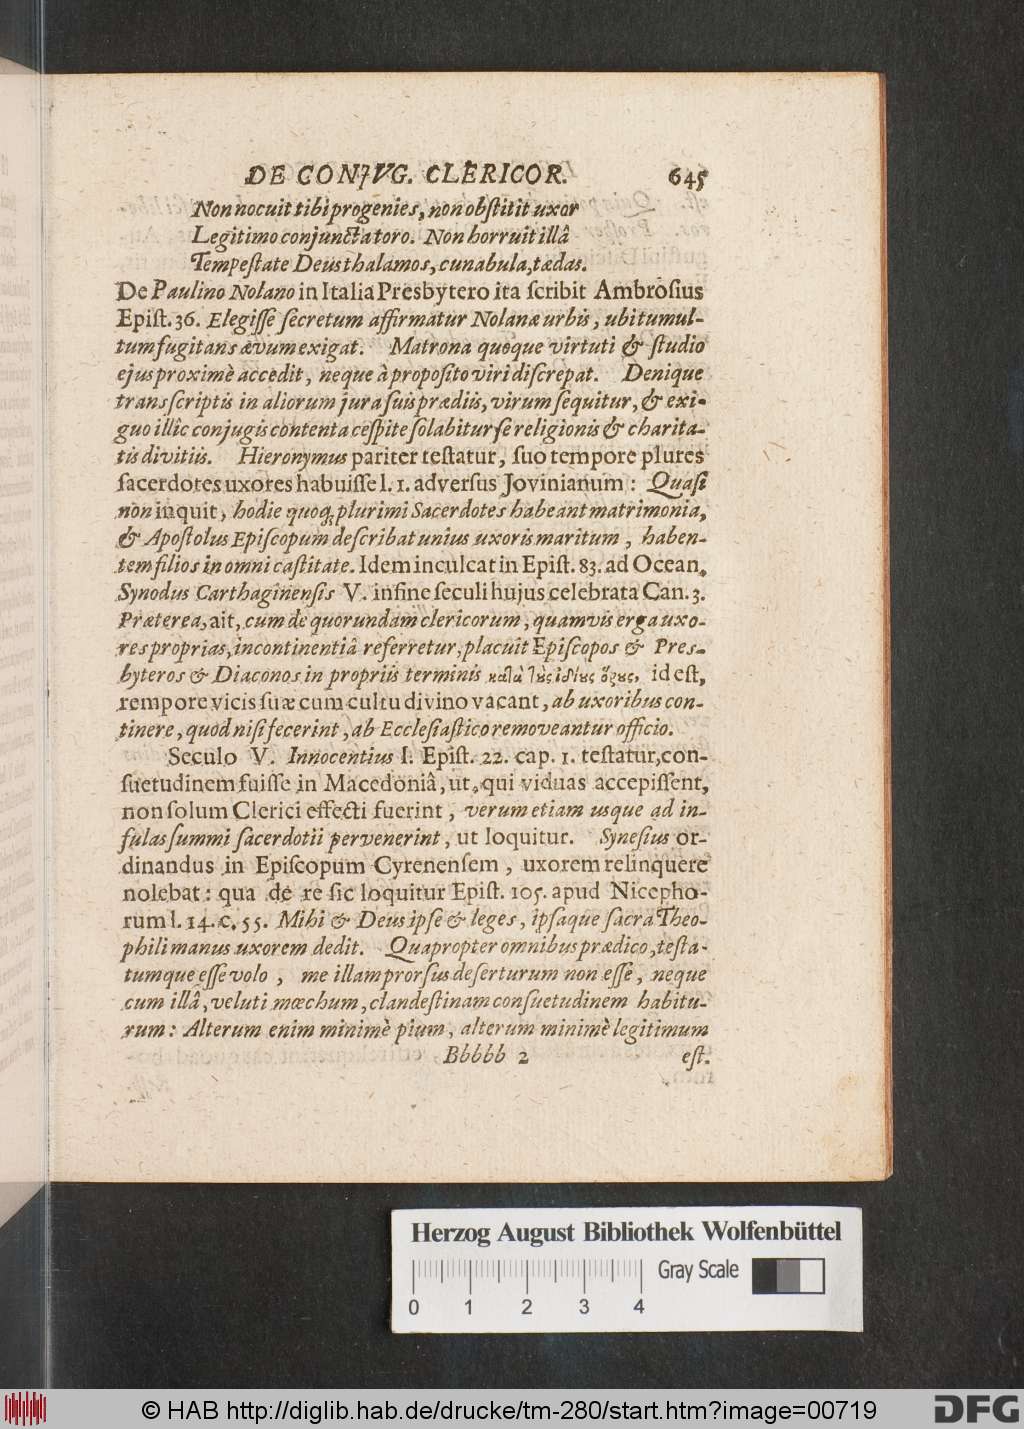 DE CONJVG. CLERICOR. 645
Non nocuit tibi progenies, non obſtitit uxor
Legitimo conjunctа toro. Non horruit illâ
Tempeſtate Deus thalamos, cunabula, tædas.
De Paulino Nolano in Italia Presbytero ita ſcribit Ambroſius
Epiſt. 36. Elegiſſe ſecretum affirmatur Nolanæ urbis, ubi tumul-
tum fugitans ævum exigat. Matrona quoque virtuti & ſtudio
ejus proximè accedit, neque à propoſito viri diſcrepat. Denique
transſcriptis in aliorum jura ſuis prædiis, virum ſequitur, & exi-
guo illîc conjugis contenta ceſpite ſolabitur ſe religionis & charita-
tis divitiis. Hieronymus pariter teſtatur, ſuo tempore plures
ſacerdotes uxores habuiſſe l. 1. adverſus Jovinianum: Quaſi
non inquit, hodie quoq; plurimi Sacerdotes habeant matrimonia,
& Apoſtolus Epiſcopum deſcribat unius uxoris maritum, haben-
tem filios in omni caſtitate. Idem inculcat in Epiſt. 83. ad Ocean.
Synodus Carthaginenſis V. in fine ſeculi hujus celebrata Can. 3.
Præterea, ait, cum de quorundam clericorum, quamvis erga uxo-
res proprias, incontinentiâ referretur, placuit Epiſcopos & Pres-
byteros & Diaconos in propriis terminis κατὰ τοὺς ἰδίους ὅρους, id eſt,
tempore vicis ſuæ cum cultu divino vacant, ab uxoribus con-
tinere, quod niſi fecerint, ab Eccleſiaſtico removeantur officio.
Seculo V. Innocentius I. Epiſt. 22. cap. 1. teſtatur, con-
ſuetudinem fuiſſe in Macedoniâ, ut, qui viduas accepiſſent,
non ſolum Clerici effecti fuerint, verum etiam usque ad in-
fulas ſummi ſacerdotii pervenerint, ut loquitur. Syneſius or-
dinandus in Epiſcopum Cyrenenſem, uxorem relinquere
nolebat: qua de re ſic loquitur Epiſt. 105. apud Nicepho-
rum l. 14. c. 55. Mihi & Deus ipſe & leges, ipſaque ſacra Theo-
phili manus uxorem dedit. Quapropter omnibus prædico, teſta-
tumque eſſe volo, me illam prorſus deſerturum non eſſe, neque
cum illâ, veluti mœchum, clandeſtinam conſuetudinem habitu-
rum: Alterum enim minimè pium, alterum minimè legitimum
Bbbbb 2 eſt.
Herzog August Bibliothek Wolfenbüttel
Gray Scale
0 1 2 3 4
© HAB http://diglib.hab.de/drucke/tm-280/start.htm?image=00719
DFG